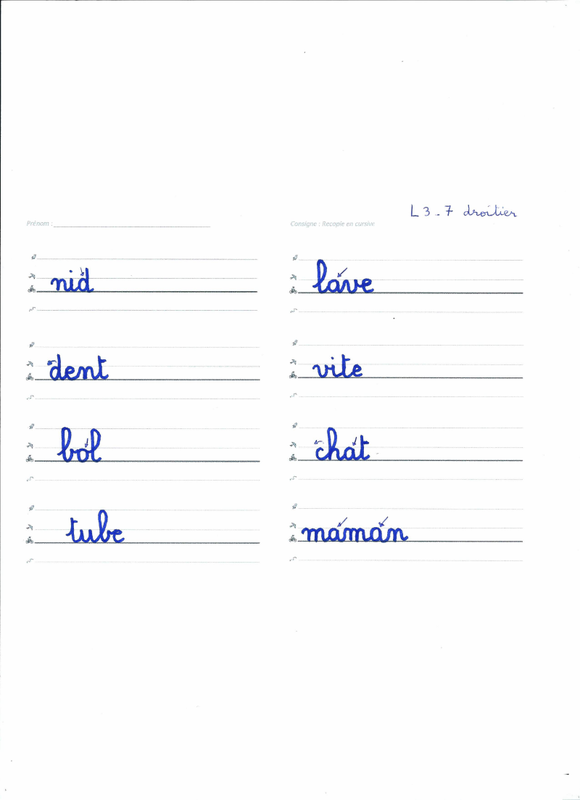 L 3 - 7 droitier
Prénom :
Consigne : Recopie en cursive
nid
lave
dent
vite
bol
chat
tube
maman